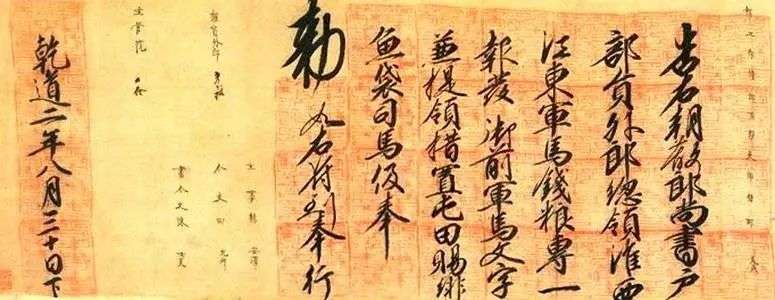 告右朝散郎尚書戶
部員外郎總領淮西
江東軍馬錢糧專一
報發御前軍馬文字
兼提領措置屯田賜緋
魚袋司馬伋奉
勅如右符到奉行
主事
令史
書令史
權員外郎
主管院
乾道二年八月三十日下